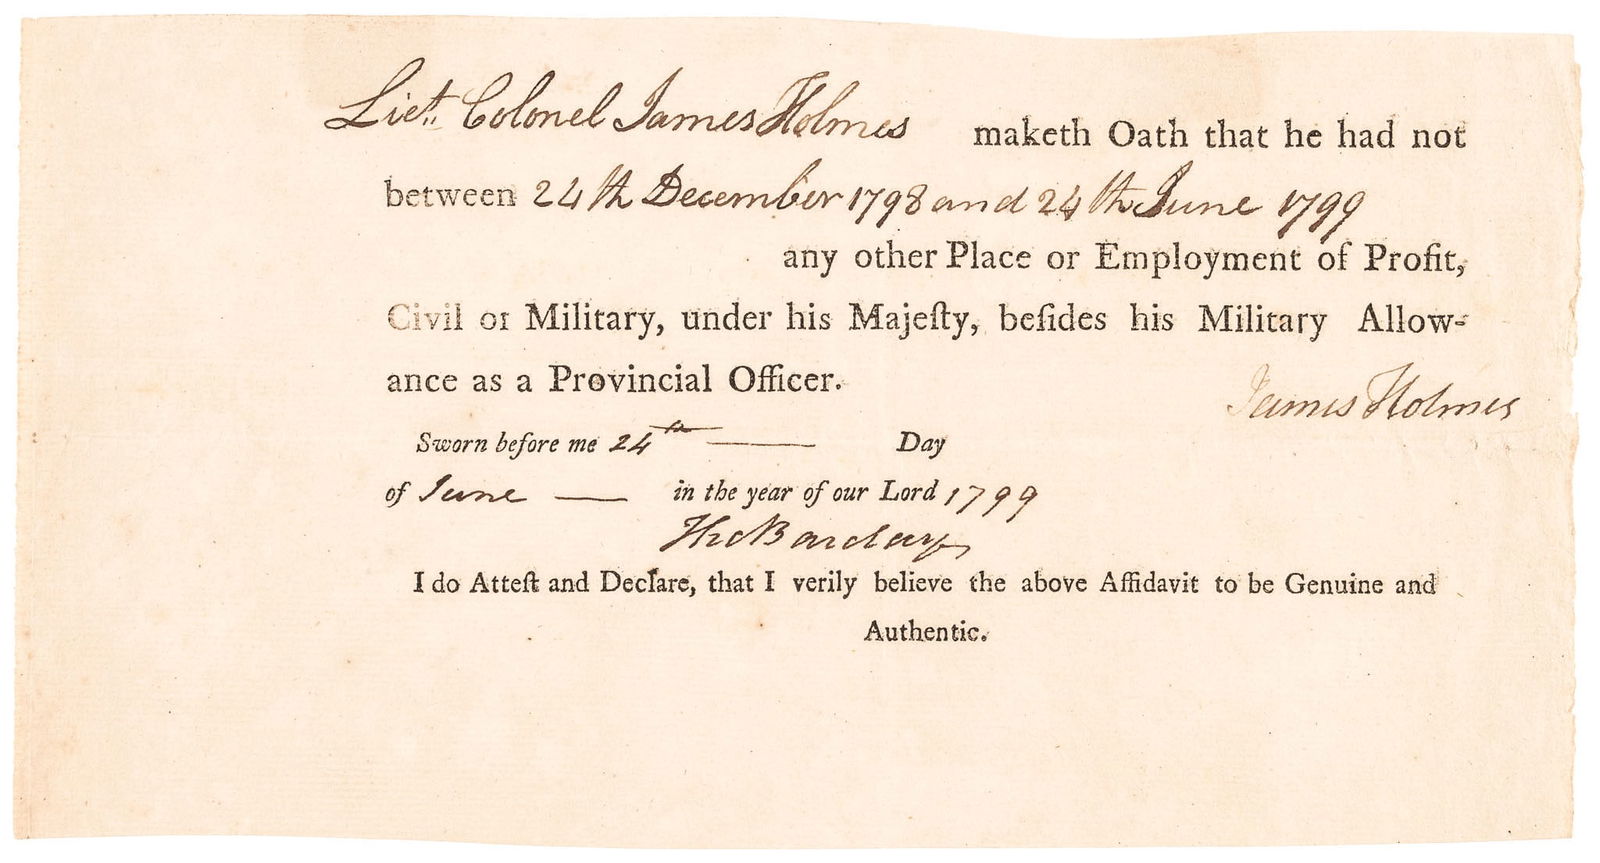 Liet. Colonel James Holmes maketh Oath that he had not
between 24th December 1798 and 24th June 1799
any other Place or Employment of Profit,
Civil or Military, under his Majeſty, beſides his Military Allow-
ance as a Provincial Officer.
James Holmes
Sworn before me 24th Day
of June in the year of our Lord 1799
Tho Barclay
I do Atteſt and Declare, that I verily believe the above Affidavit to be Genuine and
Authentic.